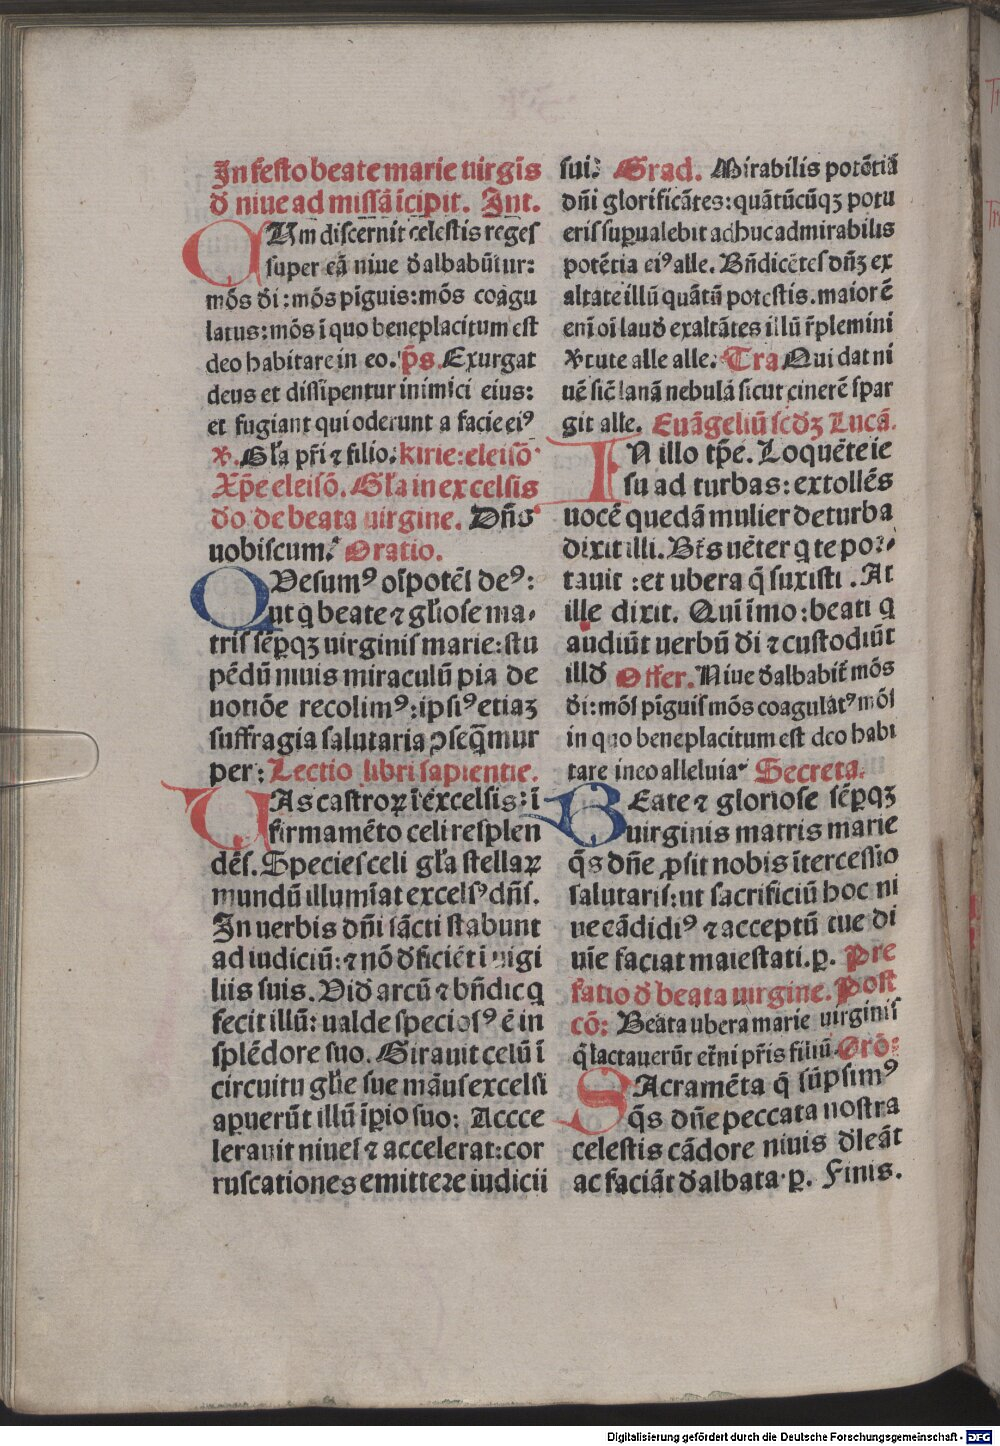 In festo beate marie uirgīs
đ niue ad missā īcipit. Int.
DUm discernit celestis reges
super eā niue đalbabūtur:
mōs đi: mōs pīguis: mōs coagu
latus: mōs ī quo beneplacitum est
deo habitare in eo. p̄s. Exurgat
deus et dissipentur inimici eius:
et fugiant qui oderunt a facie eiꝰ
℟. Gl̄a pr̄i ⁊ filio. kirie: eleisō
Xp̄e eleisō. Gl̄a in excelsis
đo de beata uirgine. Dn̄s
uobiscum. Oratio.
QVesumꝰ oīpotēs deꝰ:
ut q̄ beate ⁊ gl̄iose ma-
tris sēꝑqꝫ uirginis marie: stu
pēdū niuis miraculū pia de
uotiōe recolimꝰ: ipsiꝰ etiaꝫ
suffragia salutaria ꝯseq̄mur
per: Lectio libri sapientie.
VAs castroꝝ ī excelsis: ī
firmamēto celi resplen
dēs. Species celi gl̄a stellaꝝ
mundū illumīat excelsꝰ dn̄s.
In uerbis dn̄i sācti stabunt
ad iudiciū: ⁊ nō đficiēt ī uigi
liis suis. Viđ arcū ⁊ bn̄dic q
fecit illū: ualde speciosꝰ ē in
splēdore suo. Girauit celū ī
circuitu gl̄ie sue māus excelsi
aꝑuerūt illū īꝑio suo: Accce
lerauit niues ⁊ accelerat: cor
ruscationes emittere iudicii
sui. Grad. Mirabilis potētiā
dn̄i glorificātes: quātūcūqꝫ potu
eris suꝑualebit adhuc admirabilis
potētia eiꝰ alle. Bn̄dicētes dn̄ꝫ ex
altate illū quātū potestis. maior ē
enī oī lauđ exaltātes illū r̄plemini
℣tute alle alle. Tra Qui dat ni
uē sic̄ lanā nebulā sicut cinerē spar
git alle. Euāgeliū scđꝫ Lucā.
IN illo tp̄e. Loquēte ie
su ad turbas: extollēs
uocē quedā mulier de turba
dixit illi. Bt̄s uēter q te por-
tauit: et ubera q̄ suxisti. At
ille dixit. Quīimo: beati q
audiūt uerbū đi ⁊ custodiūt
illđ Offer. Niue đalbabit̄ mōs
đi: mōs pīguis mōs coagulatꝰ mōs
in quo beneplacitum est deo habi
tare in eo alleluia Secreta.
BEate ⁊ gloriose sēꝑqꝫ
uirginis matris marie
q̄s dn̄e ꝓsit nobis ītercessio
salutaris: ut sacrificiū hoc ni
ue cādidiꝰ ⁊ acceptū tue di
uīe faciat maiestati. ꝑ. Pre
fatio đ beata uirgine. Post
cō: Beata ubera marie uirginis
q̄ lactauerūt et̄ni pr̄is filiū. Orō:
SAcramēta q̄ sūpsimꝰ
q̄s dn̄e peccata nostra
celestis cādore niuis đleāt
ac faciāt đalbata. ꝑ. Finis.
Digitalisierung gefördert durch die Deutsche Forschungsgemeinschaft - DFG